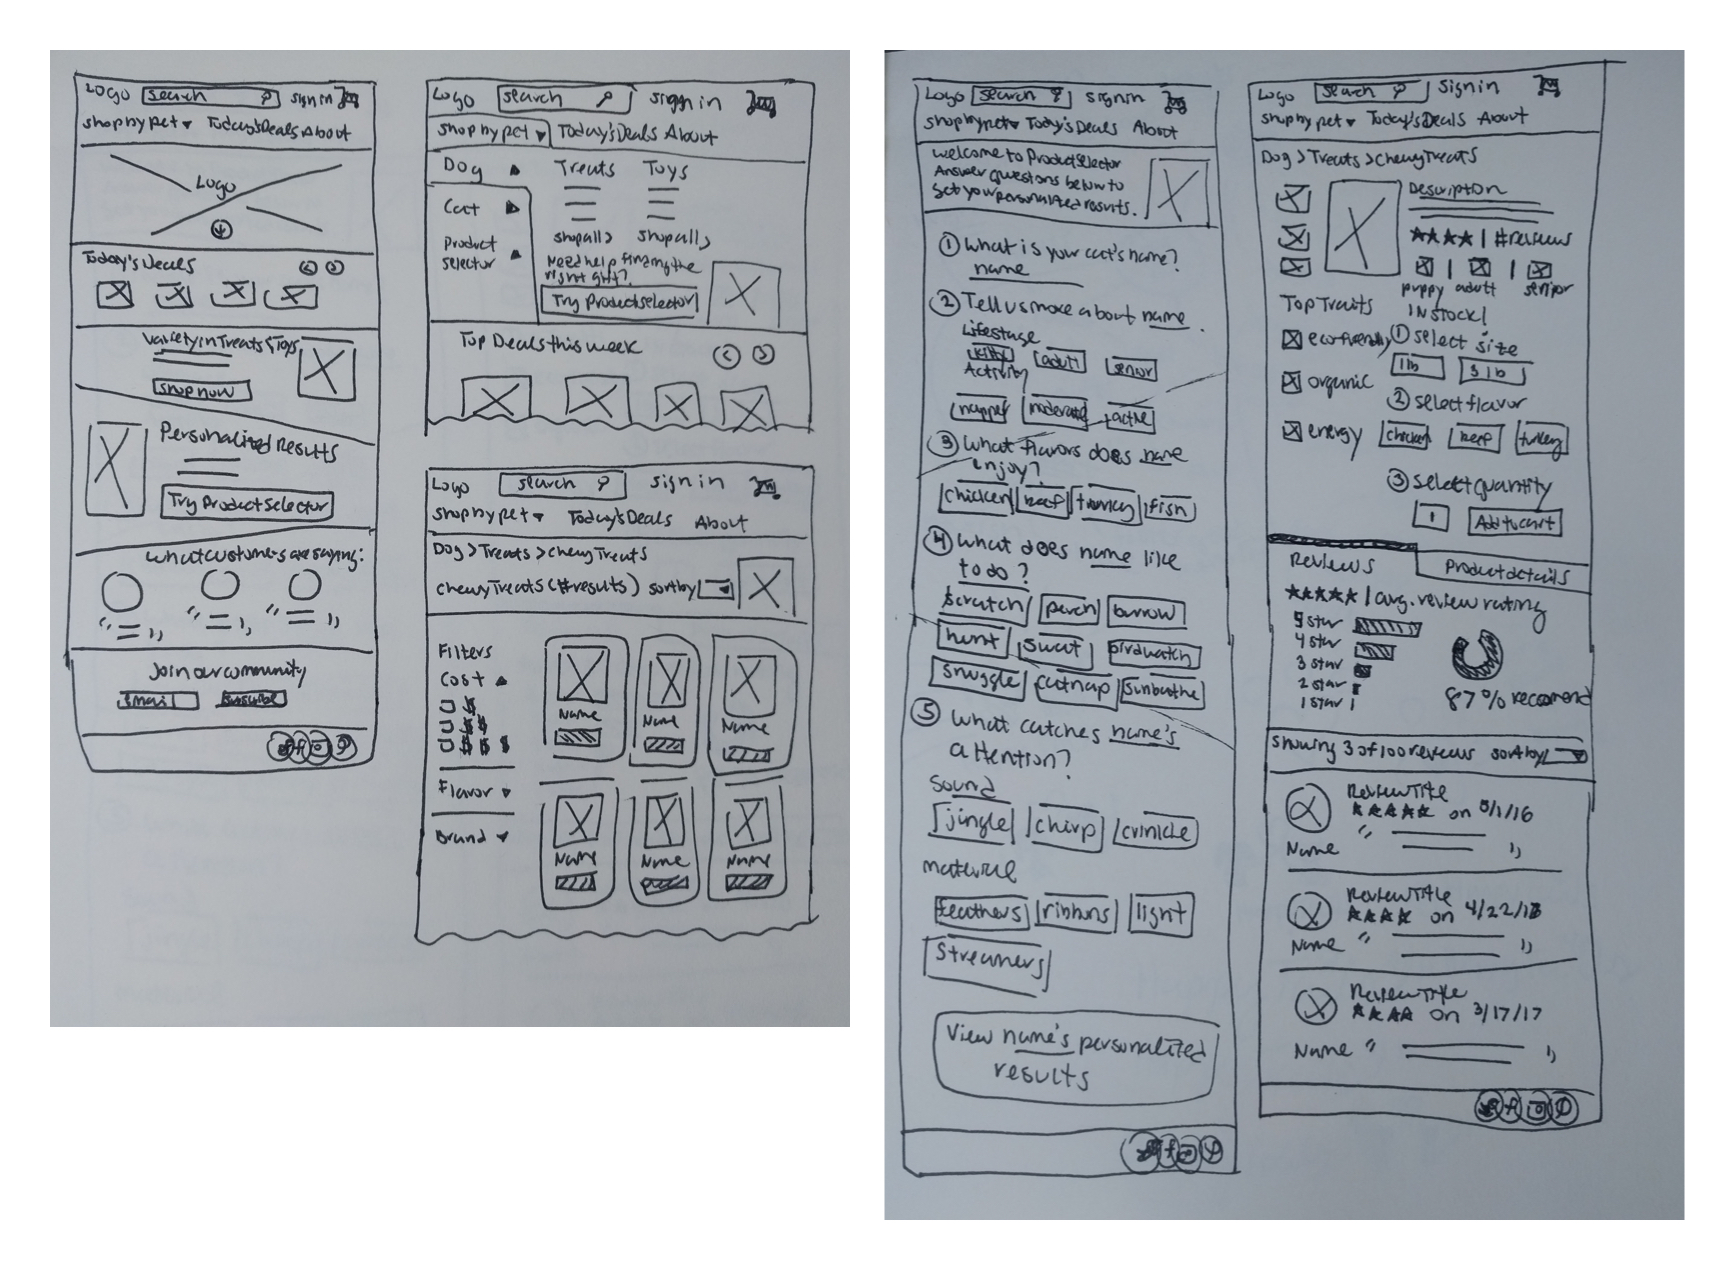 Logo search signin
shop by pet Today's Deals About
Logo
Today's Deals
Variety in Treats & Toys
shop now
Personalized Results
Try Product Selector
What customers are saying:
" "
" "
" "
Join our community
email subscribe
Logo search sign in
shop by pet Today's Deals About
Dog Treats Toys
Cat
shop all > shop all >
Product
selector
Need help finding the
right gift?
Try Product Selector
Top Deals this week
< >
Logo search sign in
shop by pet Today's Deals About
Dog > Treats > chewy Treats
chewy Treats (# results) sort by
Filters
Cost
$
$$
$$$
Flavor
Brand
Name Name Name
Name Name Name
Logo search signin
shop by pet Today's Deals About
Welcome to Product Selector
Answer questions below to
get your personalized results.
1 What is your cat's name?
name
2 Tell us more about name.
Lifestage
kitty adult senior
Activity
napper moderate active
3 What flavors does name
enjoy?
chicken beef turkey fish
4 What does name like
to do?
scratch perch burrow
hunt swat birdwatch
snuggle catnap sunbathe
5 What catches name's
attention?
sound
jingle chirp crinkle
material
feathers ribbons light
streamers
View name's personalized
results
Logo search Sign in
shop by pet Today's Deals About
Dog > Treats > chewy Treats
Description
★★★★ | # reviews
puppy adult senior
Top Traits
IN STOCK!
eco friendly
1 select size
1 lb 3 lb
organic
2 select flavor
energy
chicken beef turkey
3 select quantity
1 Add to cart
Reviews Product details
★★★★★ | avg. review rating
5 star
4 star
3 star
2 star
1 star
87% recomend
Showing 3 of 100 reviews sort by
Review Title
★★★★★ on 5/1/16
Name " "
Review Title
★★★★ on 4/22/18
Name " "
Review Title
★★★★ on 3/17/17
Name " "